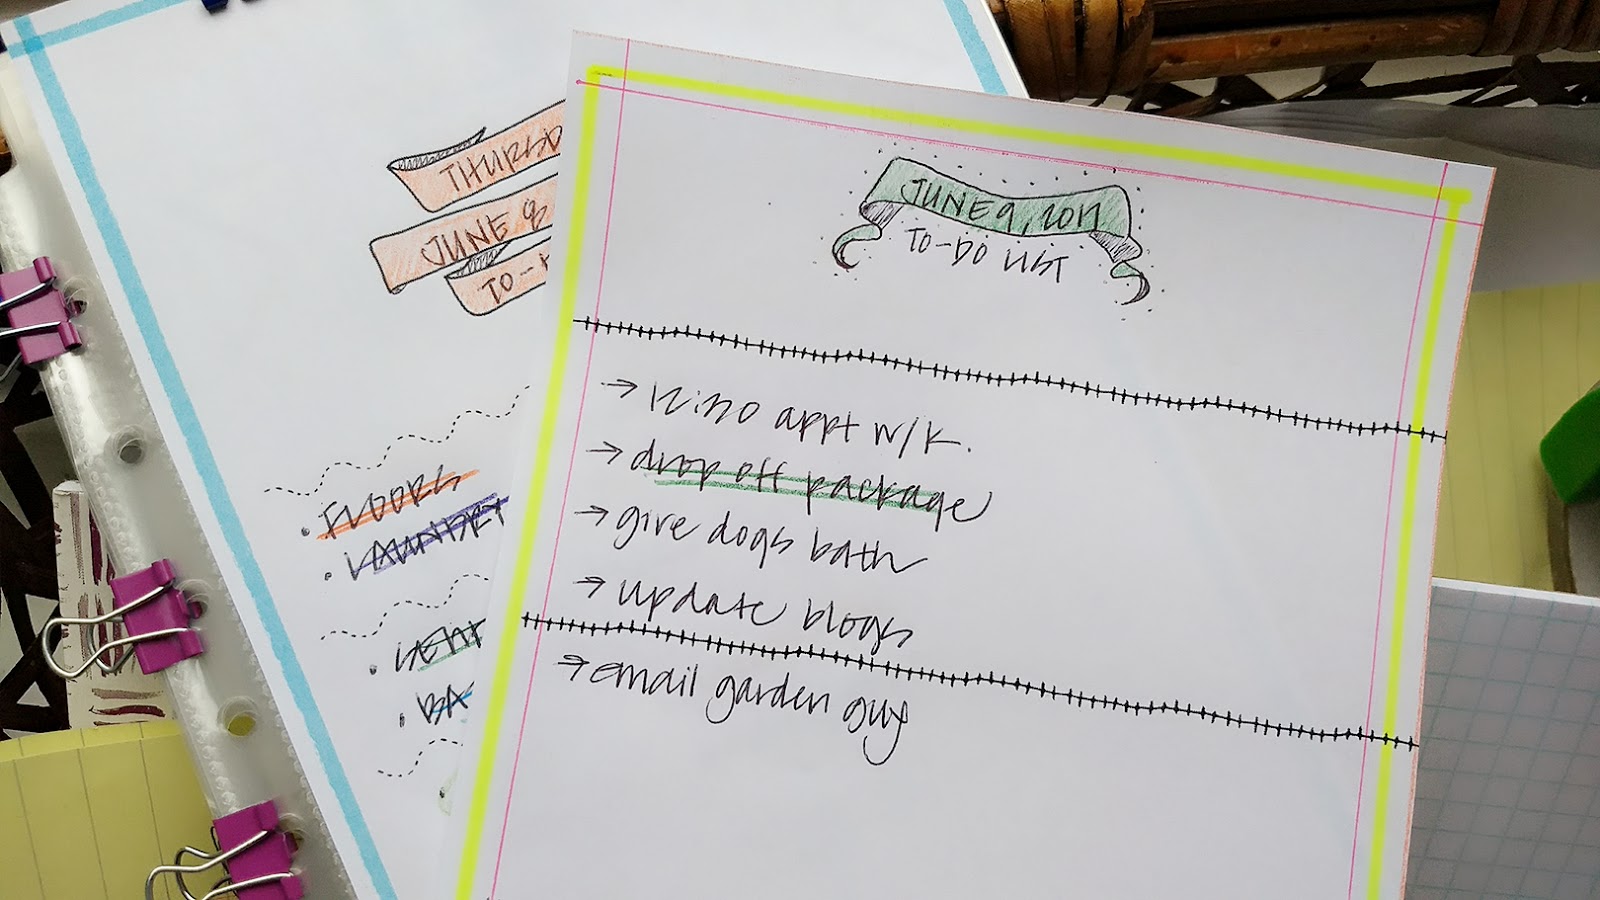 THURSD
JUNE 8
TO-
• FLOORS
• LAUNDRY
• BA
JUNE 9, 2017
TO-DO LIST
→ 12:30 appt w/K.
→ drop off package
→ give dogs bath
→ update blogs
→ email garden guy